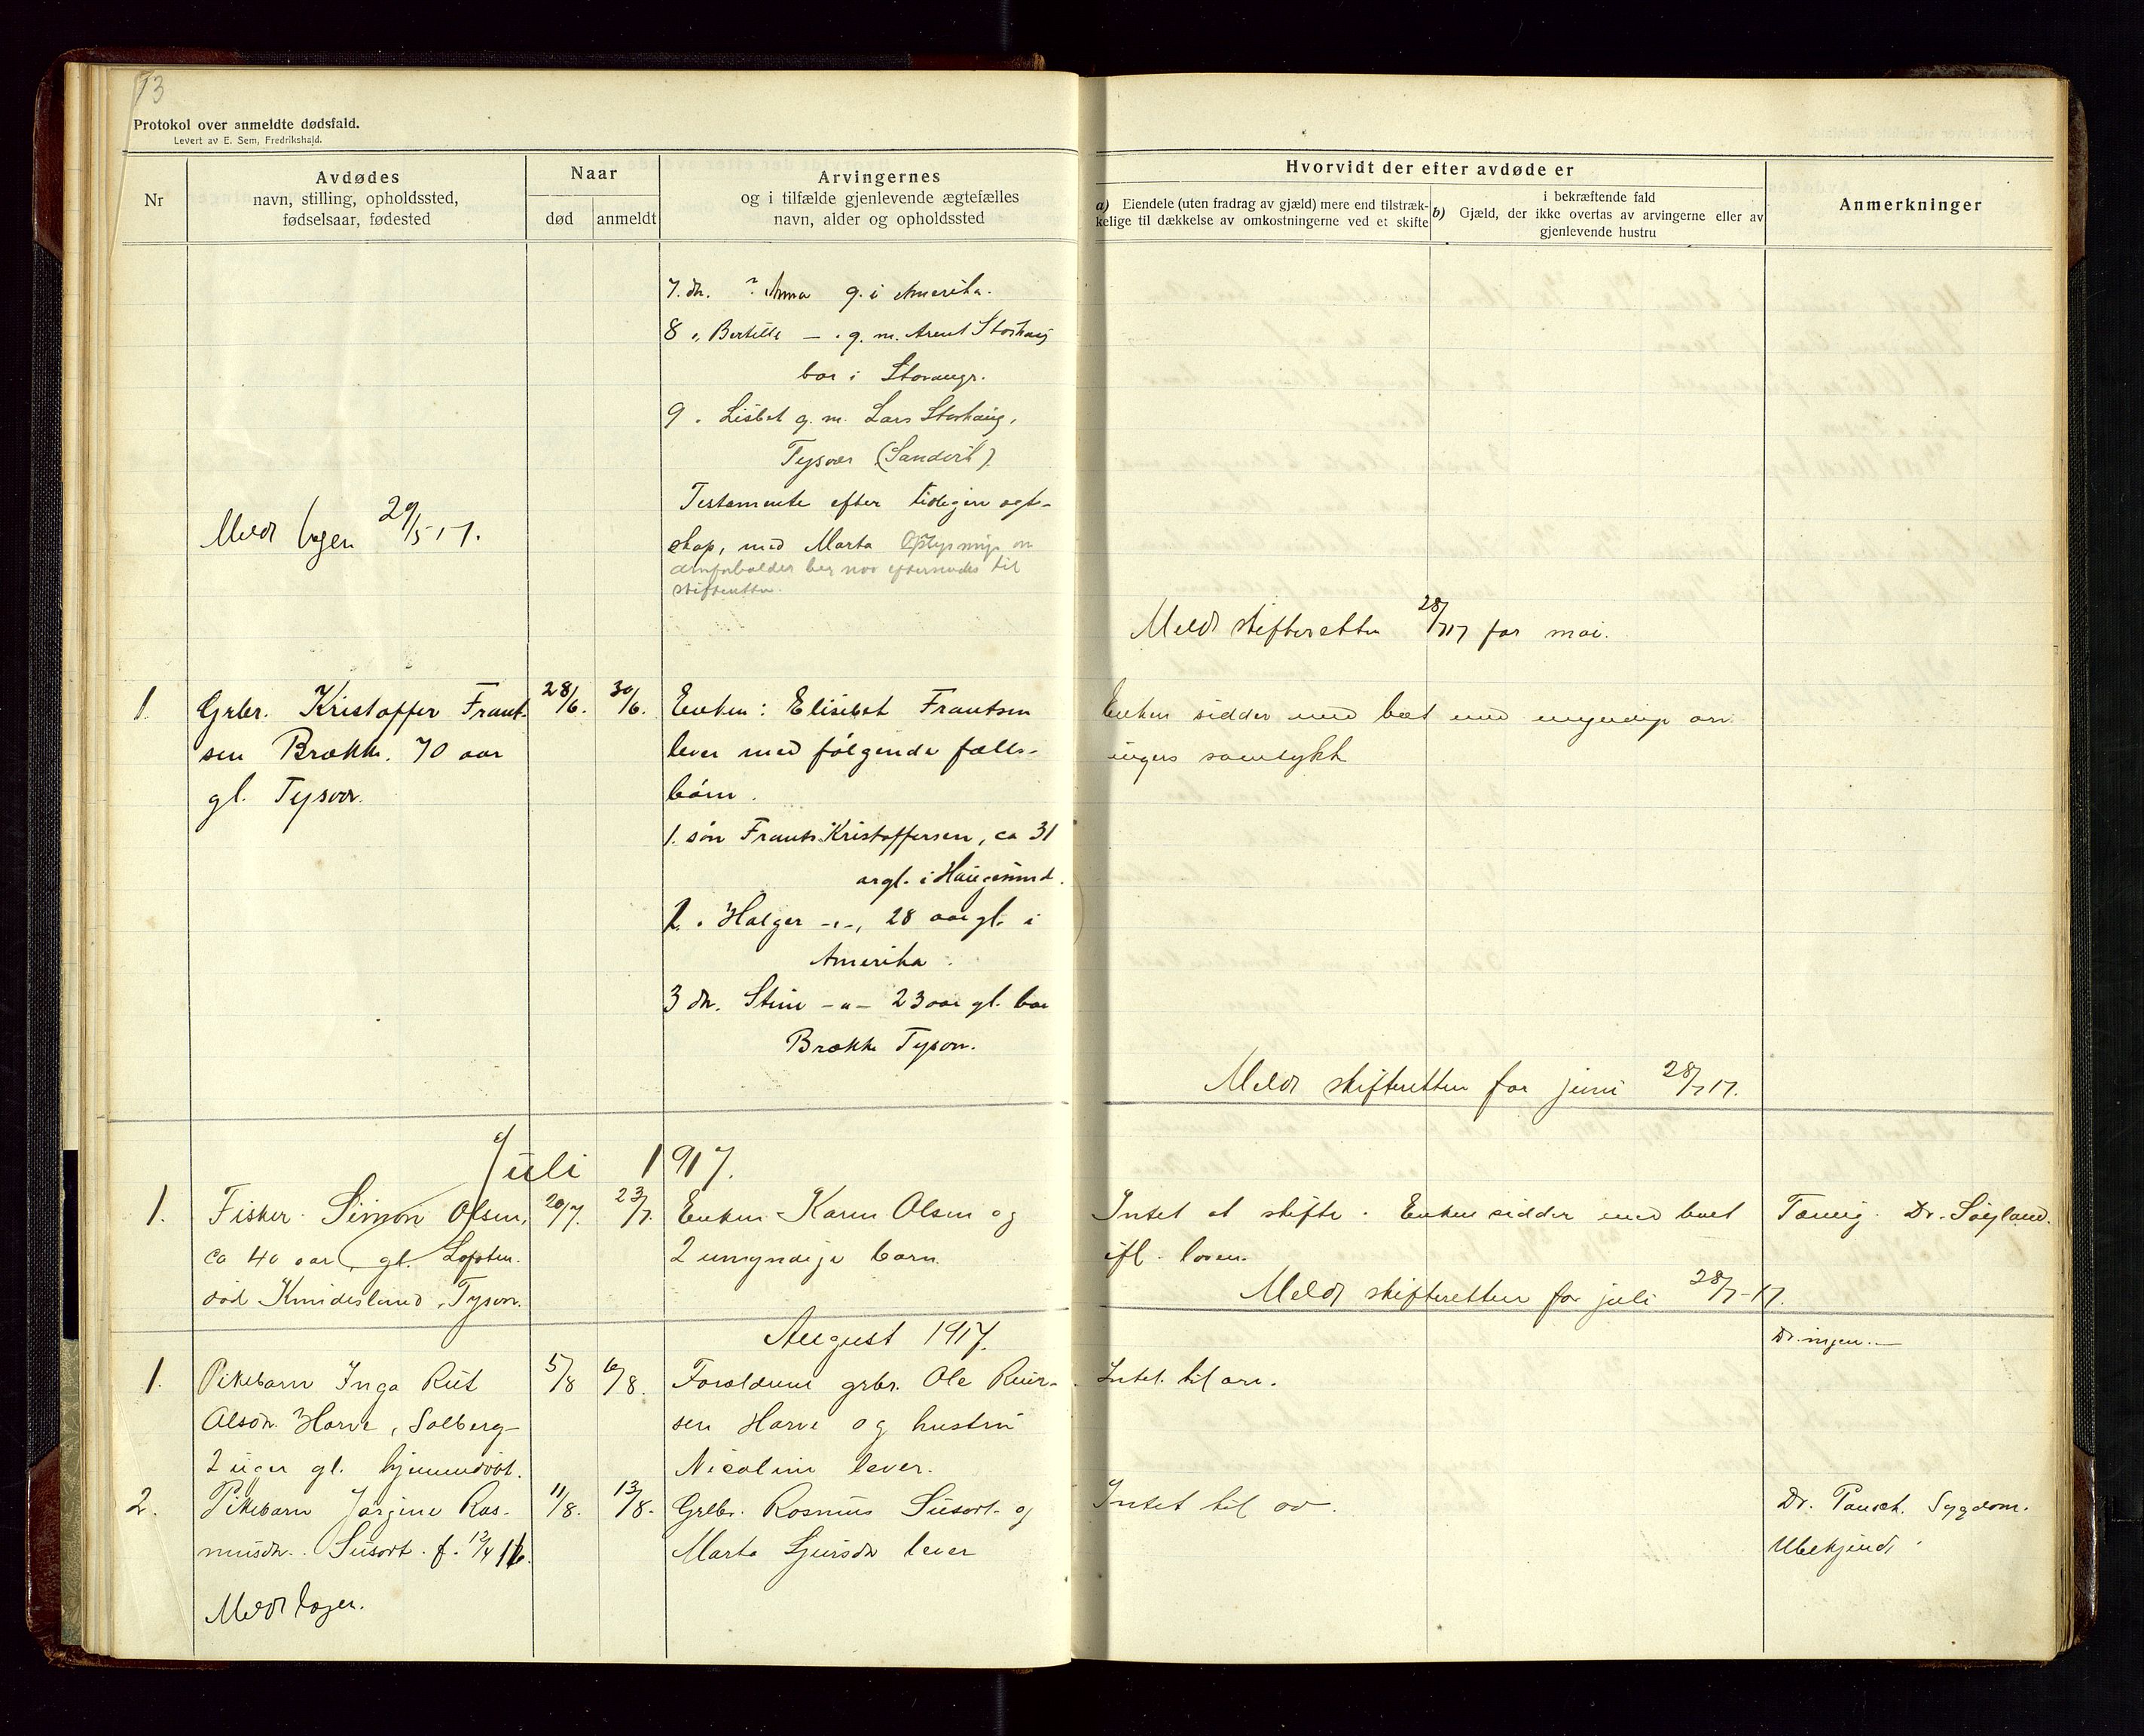 73
Protokol over anmeldte dødsfald.
Levert av E. Sem, Fredrikshald.
Nr
Avdødes
navn, stilling, opholdssted,
fødselsaar, fødested
Naar
død
anmeldt
Arvingernes
og i tilfælde gjenlevende ægtefælles
navn, alder og opholdssted
Hvorvidt der efter avdøde er
a) Eiendele (uten fradrag av gjæld) mere end tilstræk-
kelige til dækkelse av omkostningerne ved et skifte
i bekræftende fald
b) Gjæld, der ikke overtas av arvingerne eller av
gjenlevende hustru
Anmerkninger
7. dr. ? Anna g. i Amerika.
8 " Bertille — . g. m. Arent Storhaug
bor i Stavangr.
9 . Lisbet g. m. Lars Storhaug,
Tysvær (Sandvik)
Testamente efter tidligere egt-
skap, med Marta
skifteretten.
Meldt 29/5 17.
Meldt skifteretten 28/7 17 for mai.
1. Grbr. Kristoffer Frant-
sen Brække. 70 aar
gl. Tysvær.
28/6. 30/6.
Enken: Elisebet Frantsen
lever med følgende fælles-
børn.
1. søn Frants Kristoffersen, ca 31
argl. i Haugesund.
2. " Holger -"-, 28 aar gl. i
Amerika.
3 dr. Stine -"- 23 aar gl. bor
Brække Tysvær.
Enken sidder med boet med umyndige arv
ingers samtykke
Meldt skifteretten for juni 28/7 17.
Juli 1917.
1. Fisker Simon Olsen,
ca 40 aar gl. Lofoten.
død Kmidesland, Tysvær.
20/7. 23/7.
Enken Karen Olsen og
2 umyndige barn.
Intet at skifte. Enken sidder med boet
ifl. loven.
Tæring. Dr. Søyland.
Meldt skifteretten for juli 28/7-17.
August 1917.
1. Pikebarn Inga Rut
Olsdr. Harve, Solberg-
2 uger gl. hjemmedøbt.
5/8 6/8.
Forældrene grbr. Ole
sen Harve og hustru
Nicoline lever.
Intet til arv.
Dr. ingen. —
2. Pikebarn Jørgine Ras-
musdr. Susort. f. 12/4 16.
11/8. 13/8.
Grbr. Rasmus Susort og
Marta Sjursdr lever
Intet til arv.
Dr. Sygdom.
Ubekjendt.
Meldt